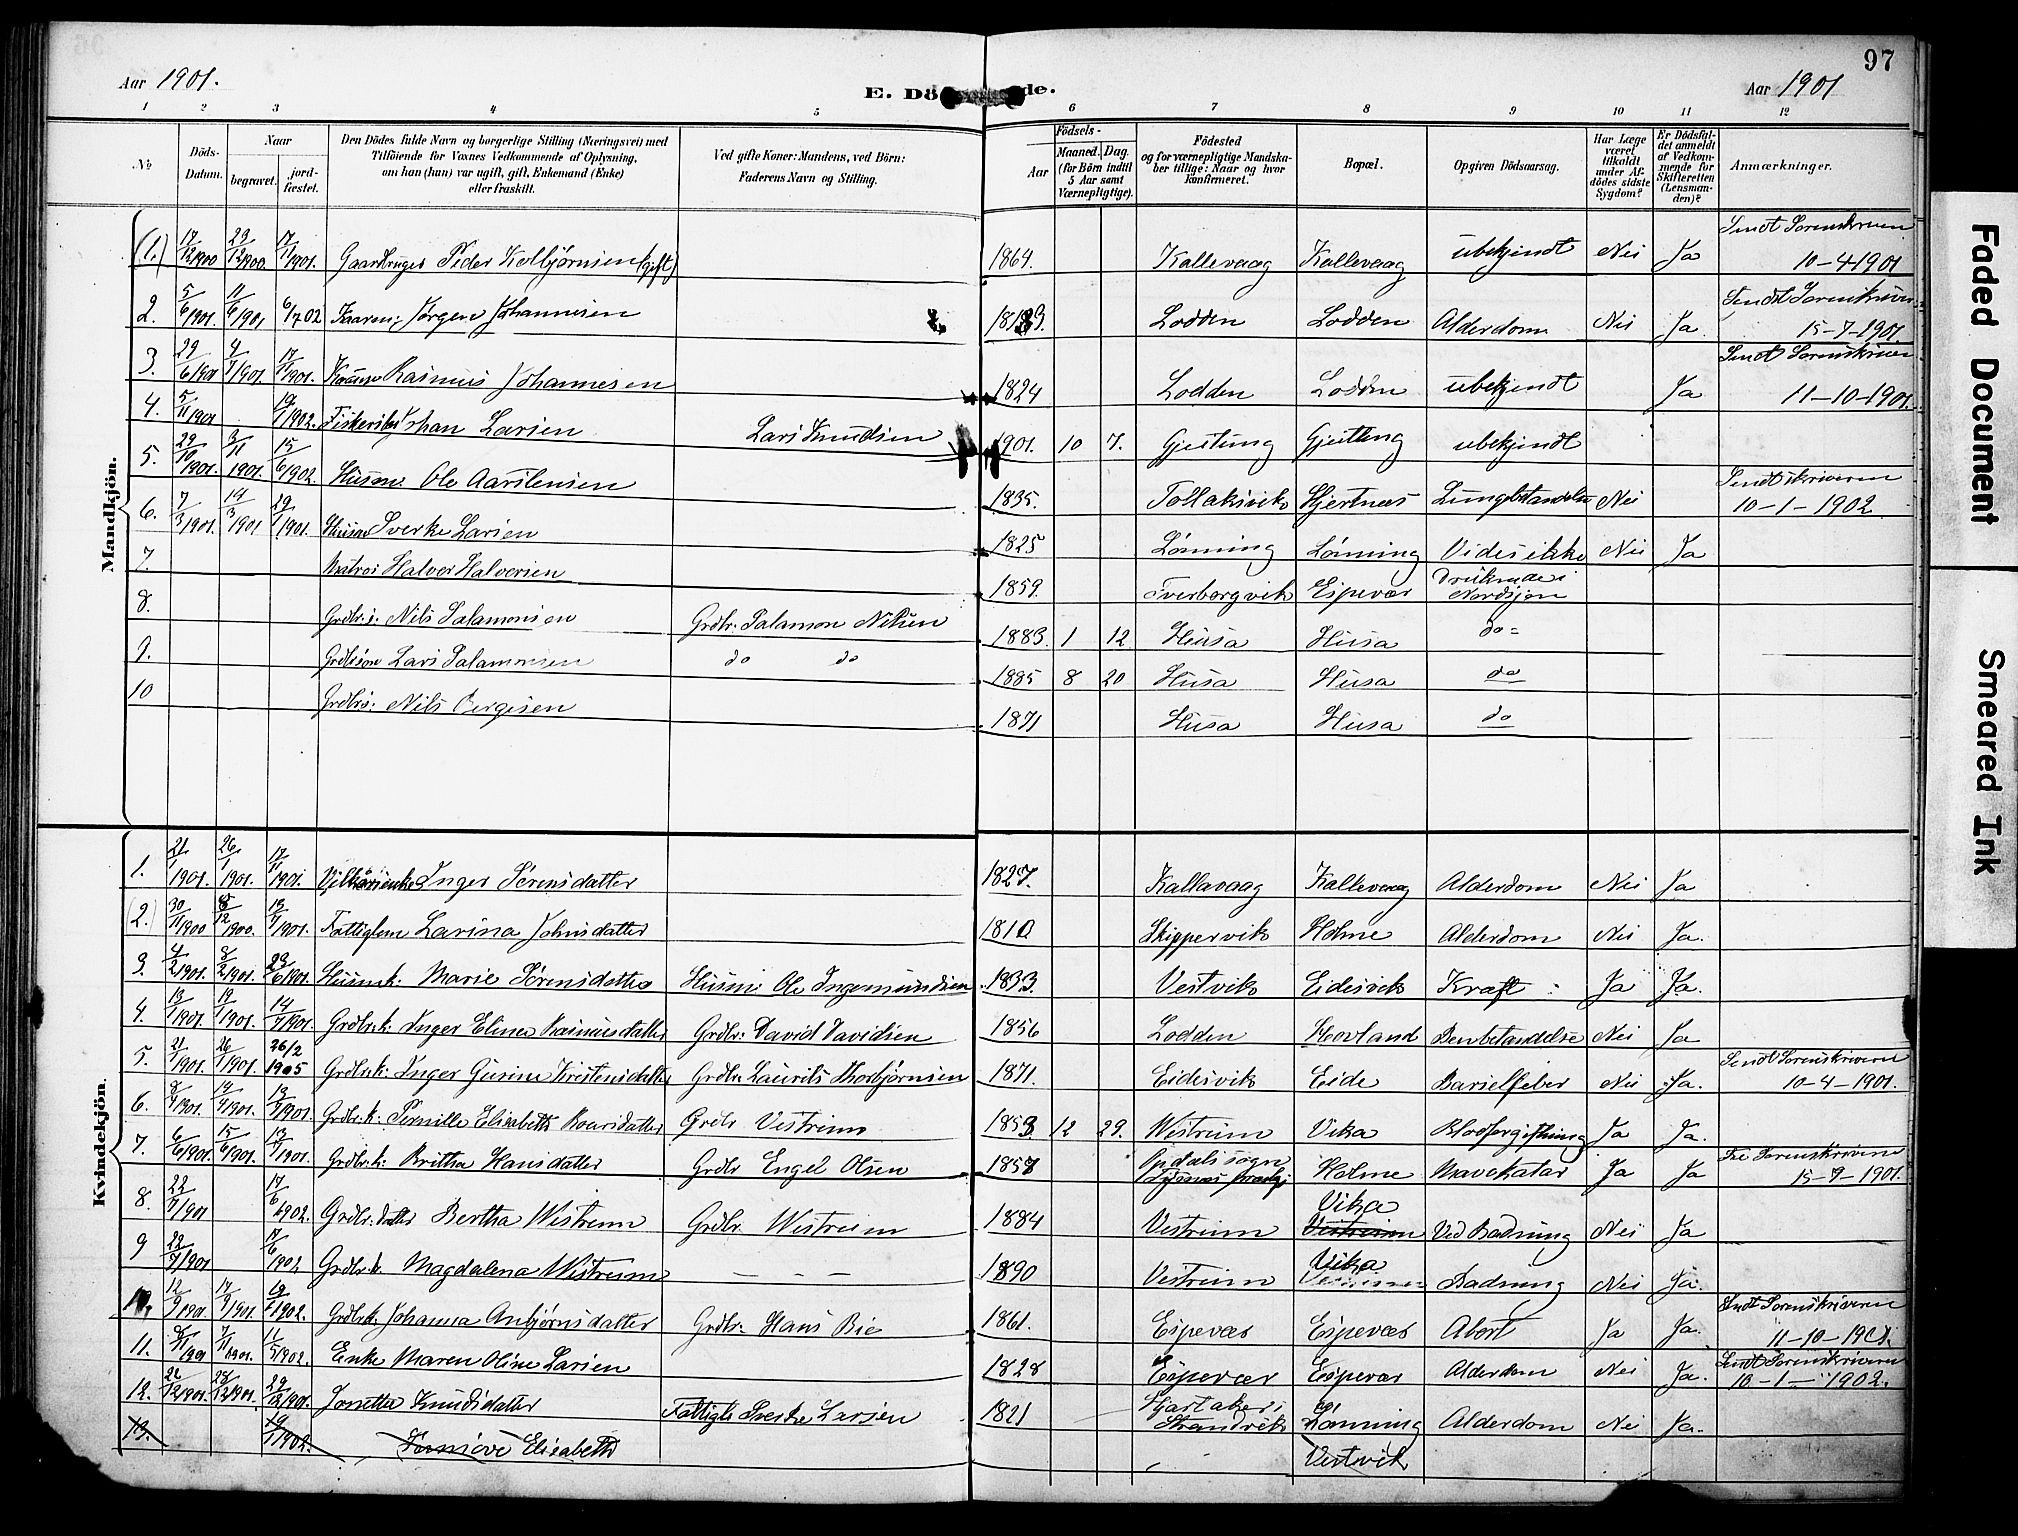 97
Aar 1901.
E. Dö de.
Aar 1901
1 2 3 4 5 6 7 8 9 10 11 12
No
Döds-Datum.
Naar
begravet.
jordfæstet.
Den Dödes fulde Navn og borgerlige Stilling (Næringsvei) med
Tilföiende for Voxnes Vedkommende af Oplysning,
om han (hun) var ugift, gift, Enkemand (Enke)
eller fraskilt.
Ved gifte Koner: Mandens, ved Börn:
Faderens Navn og Stilling.
Födsels-
Aar
Maaned. Dag.
(for Börn indtil
5 Aar samt
Værnepligtige).
Födested
og for værnepligtige Mandskaber tillige: Naar og hvor
konfirmeret.
Bopæl.
Opgiven Dödsaarsag.
Har Læge
været
tilkaldt
under Afdödes sidste
Sygdom?
Er Dödsfaldet anmeldt
af Vedkommende for
Skifteretten
(Lensmanden)?
Anmærkninger.
Mandkjön.
(1.) 17/12 1900 23/12 1900. 17/1 1901. Peder Kolbjørnsen (gift) 1864. Kallevaag Kallevaag ubekjendt Nei Ja Sendt Sorenskriveren 10-4 1901
2. 5/6 1901. 11/6 1901 6/7 02 Jørgen Johannesen 1819. Lodden Lodden Alderdom Nei Ja. Sendt Sorenskriver 15-7-1901.
3. 29/6 1901 4/7 1901. 17/ 1901. Rasmus Johannesen 1824 Lodden Lodden ubekjendt Ja Sendt Sorenskriver 11-10-1901.
4. 5/11 1901 19/1 1902. Johan Larsen Lars Knudsen 1901. 10 7. Gjeitung Gjeitung ubekjendt
5. 29/10 1901. 3/11 1901. 15/6 1902. Husm. Ole Aarstensen 1835. Tollaksvik Hjertnæs Lungebetændelse Nei Sendt skriveren 10-1-1902
6. 7/3 1901. 14/3 1901 29/ 1901. Husm Sverke Larsen 1825 Lønning Lønning Vides ikke Nei Ja
7 Matros Halvor Halvorsen 1859. Tverborgvik Espevær Druknede i Nordsjøen
8. Grdbr. s. Nils Salamonsen Grdbr. Salamon Nilsen 1883. 1 12 Husa Husa do
9. Lars Salamonsen do do 1885 8 20 Husa Husa do
10 Grdbr. Nils Bergesen 1871 Husa Husa do
Kvindekjön.
1. 21/1 1901. 26/1 1901. 17/ 1901. Inger Sørensdatter 1827. Kallavaag Kallevaag Alderdom Nei Ja
(2.) 30/11 1900 8/12 1900. 13/ 1901. Fattiglem Larina Johnsdatter 1810 Skippervik Holme Alderdom Nei Ja.
3. 4/2 1901. 8/2 1901. 23/6 1901. Husmk. Marie Sørensdatter Husm. Ole Ingemundsen 1833. Vestvik Eidesvik Kræft Ja Ja.
4. 13/1 1901. 19/1 1901. 14/7 1901. Grdbr. k. Inger Eline Rasmusdatter Grdbr. David Davidsen 1856 Lodden Hovland Benbetændelse Nei Ja
5. 21/1 1901. 26/1 1901. 26/2 1905 Grdbr. k. Inger Gurine Kristensdatter Grdbr. Laurits Thorbjørnsen 1871. Eidesvik Eide Barselfeber Nei Ja. Sendt Sorenskriveren 10-4-1901.
6. 8/4 1901. 14/4 1901. 13/ 1901. Grdbr. k. Pernille Elisabeth Roarsdatter Grdbr Vestrum 1853 12 29. Westrum Vika Blodforgiftning Ja Ja.
7. 6/6 1901. 15/6 1901. 13/7 1901. Grdbr. k. Britha Hansdatter Grdbr Engel Olsen 1857 Opdals sogn Tysnes prgj Holme Mavekatar Ja Ja Sorenskriveren 15-9-1901.
8. 22/7 1901 17/6 1902. Grdbr. datter Bertha Westrum Grdbr. Westrum 1884 Vestrum Vika Vestrum Ved Badning Nei Ja
9 22/7 1901 17/6 1902 Grdbr. k. Magdalena Westrum — — — 1890 Vestrum Vika Badning Nei Ja.
10. 12/9 1901. 17/9 1901. 19/1 1902. Grdbr. k. Johanna Anbjørnsdatter Grdbr. Hans Bie 1861. Espevær Espevær Abort Ja Ja. Sendt Sorenskriveren 11-10-1901.
11. 2/11 1901 7/11 1901. 11/5 1902. Enke Maren Oline Larsen 1828 Espevær Espevær Alderdom Nei Ja. Sendt Sorenskriveren 10-1-1902.
12. 22/12 1901. 28/12 1901. 29/12 1901. Jonetta Knudsdatter Fattigl. Sverke Larsen 1821 Strandvik Lønning Alderdom Nei Ja.
13. 19/1 1902. Elisabeth Vestvik
Faded Document
Smeared Ink